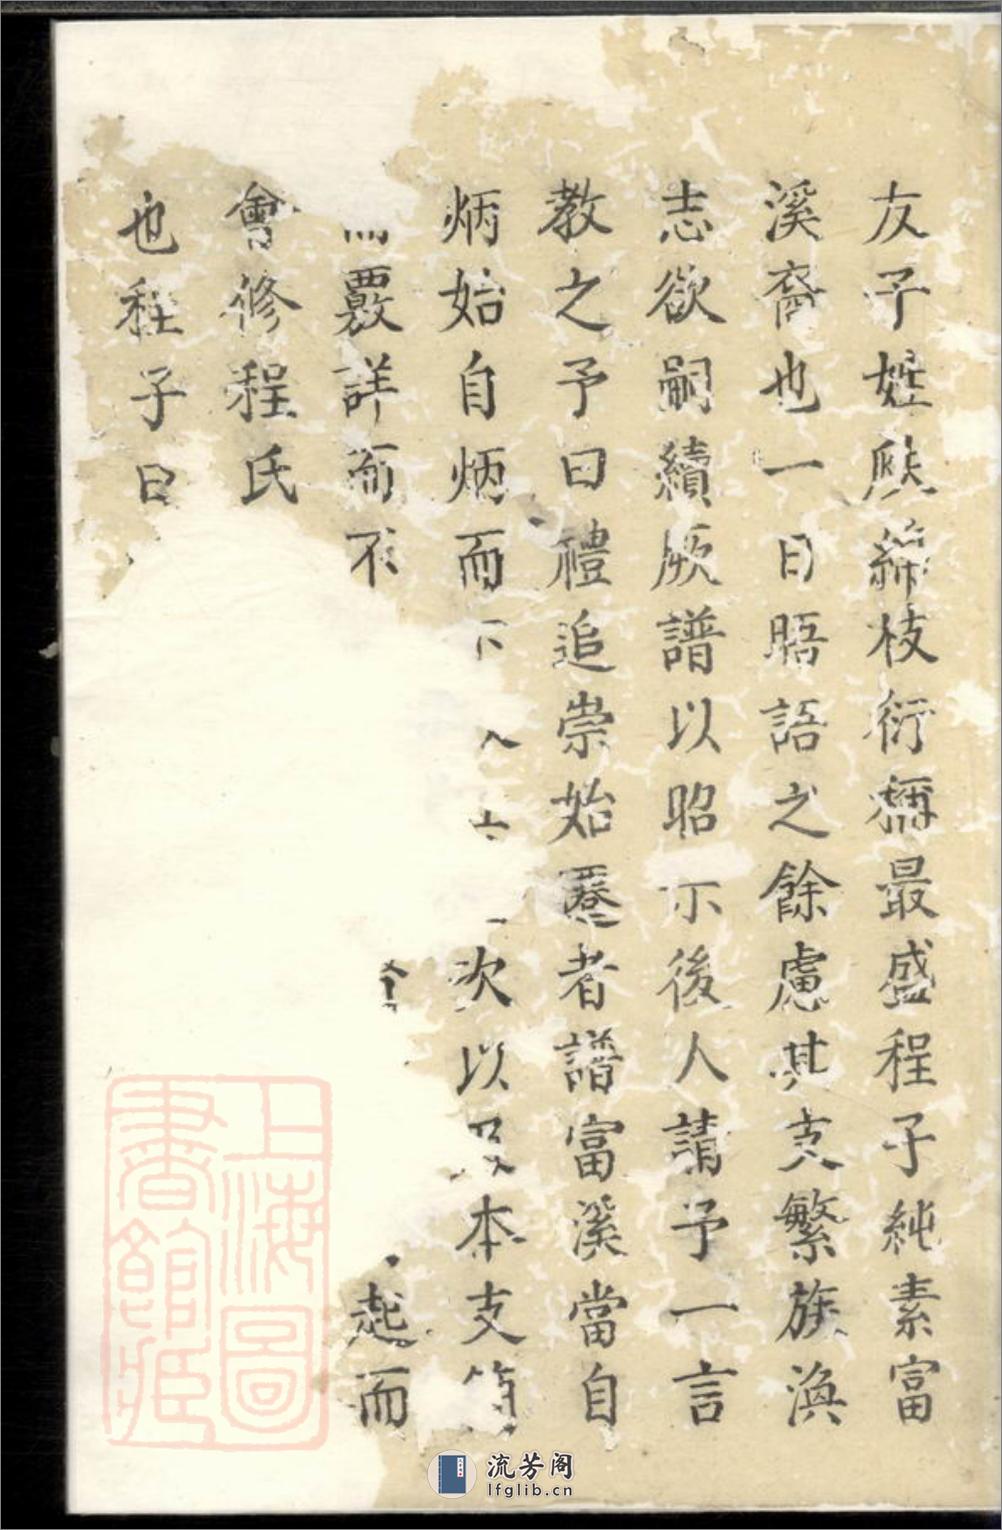 友子姓㬰綿枝衍稱最盛程子純素富
溪裔也一日晤語之餘慮其支繁族渙
志欲嗣續厥譜以昭示後人請予一言
教之予曰禮追崇始遷者譜富溪當自
炳始自炳而下次以及本支
而覈詳而不起而
會修程氏
也程子曰
上海圖書館藏
流芳阁
lfglib.cn